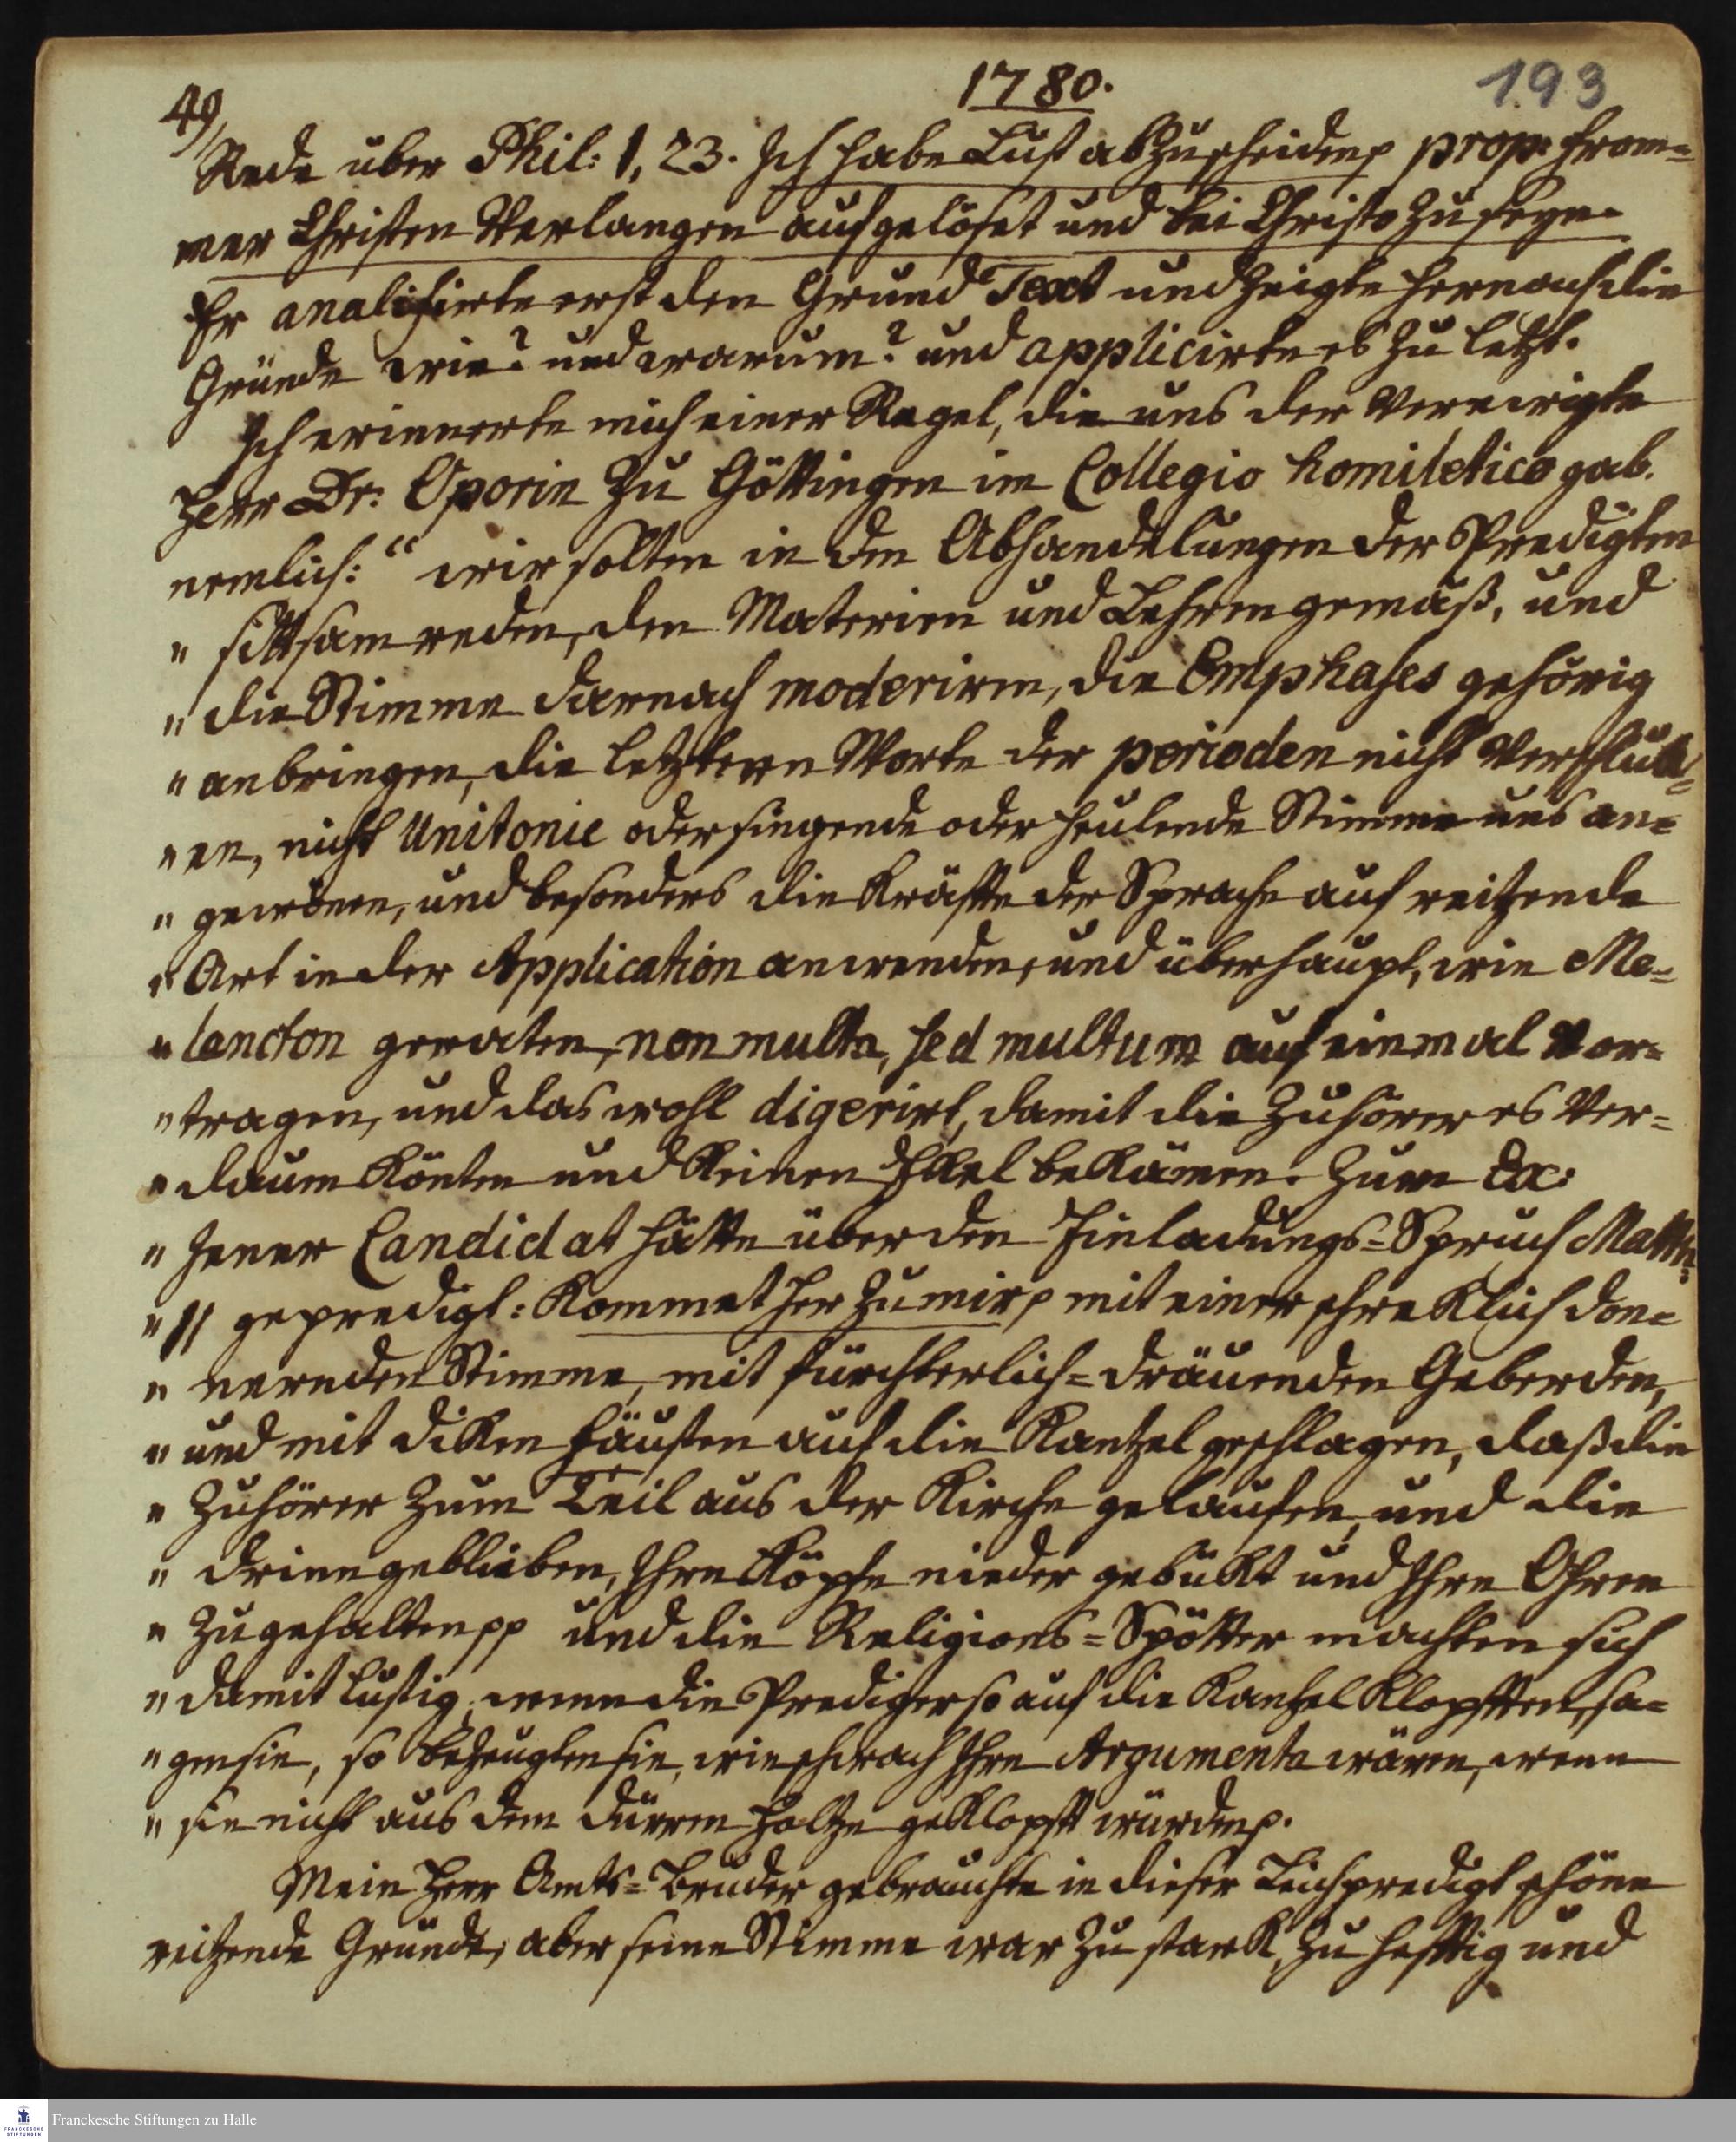 1780.
193
49,
Rede über Phil: 1, 23. Ich habe Lust abzuscheiden p prop: from-
mer Christen Verlangen aufgelöset und bei Christo zu seyn.
Er analisirte erst den Grund Text und zeigte hernach die
Gründe wie? und warum? und applicirte es zu letzt.
Ich erinnerte mich einer Regel, die uns der verewigte
Herr Dr: Oporin zu Göttingen im Collegio homiletico gab.
nemlich: “ wir solten in den Abhandelungen der Predigten
" sittsam reden, den Materien und Lehren gemäß, und
" die Stimme darnach moderiren, die Emphases gehörig
" anbringen, die letztern Worte der perioden nicht verschluk-
" en, nicht Unitonie oder singende oder heulende Stimme uns an-
" gewönen, und besonders die Kräffte der Sprache auf reitzende
" Art in der Application anwenden, und überhaupt, wie Me-
" lancton geraten, non multa, sed multum auf einmal vor-
" tragen, und das wohl digerirt, damit die Zuhörer es ver-
" dauen könten und keinen Ekel bekämen. Zum Ex:
" Jener Candidat hätte über den Einladungs-Spruch Matth:
" 11 gepredigt: Kommet her zu mir p mit einer schreklich don-
" nernden Stimme, mit fürchterlich-dräuenden Geberden,
" und mit diken Fäusten auf die Kantzel geschlagen, daß die
" Zuhörer zum Teil aus der Kirche gelaufen, und die
" drinn geblieben, Ihre Köpfe nieder gebükt und Ihre Ohren
" zugehalten pp und die Religions-Spötter machten sich
" damit lustig, wenn die Prediger so auf die Kantzel klopfften, sa-
" gen sie, so bezeugten sie, wie schwach Ihre Argumenta wären, wenn
" sie nicht aus dem dürren Holtze geklopfft würden p.
Mein Herr Amts-Bruder gebrauchte in dieser Leichpredigt schöne
reitzende Gründe, aber seine Stimme war zu stark, zu hefftig und
Franckesche Stiftungen zu Halle
FRANCKESCHE
STIFTUNGEN